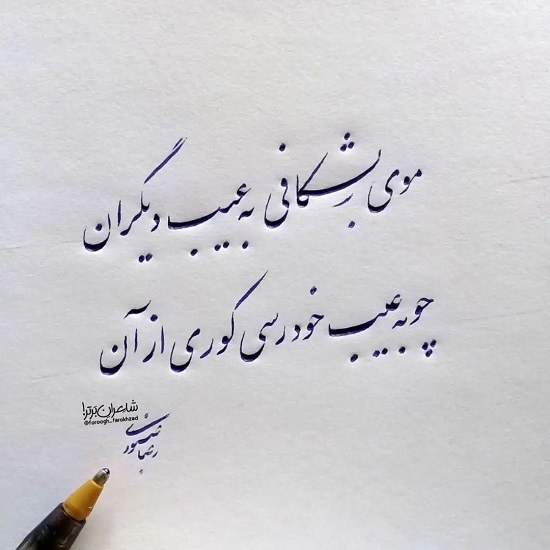 موی بشکافی به عیب دیگران
چو به عیب خود رسی کوری از آن
شاعران برتر!
@foroogh_farokhzad
رضا